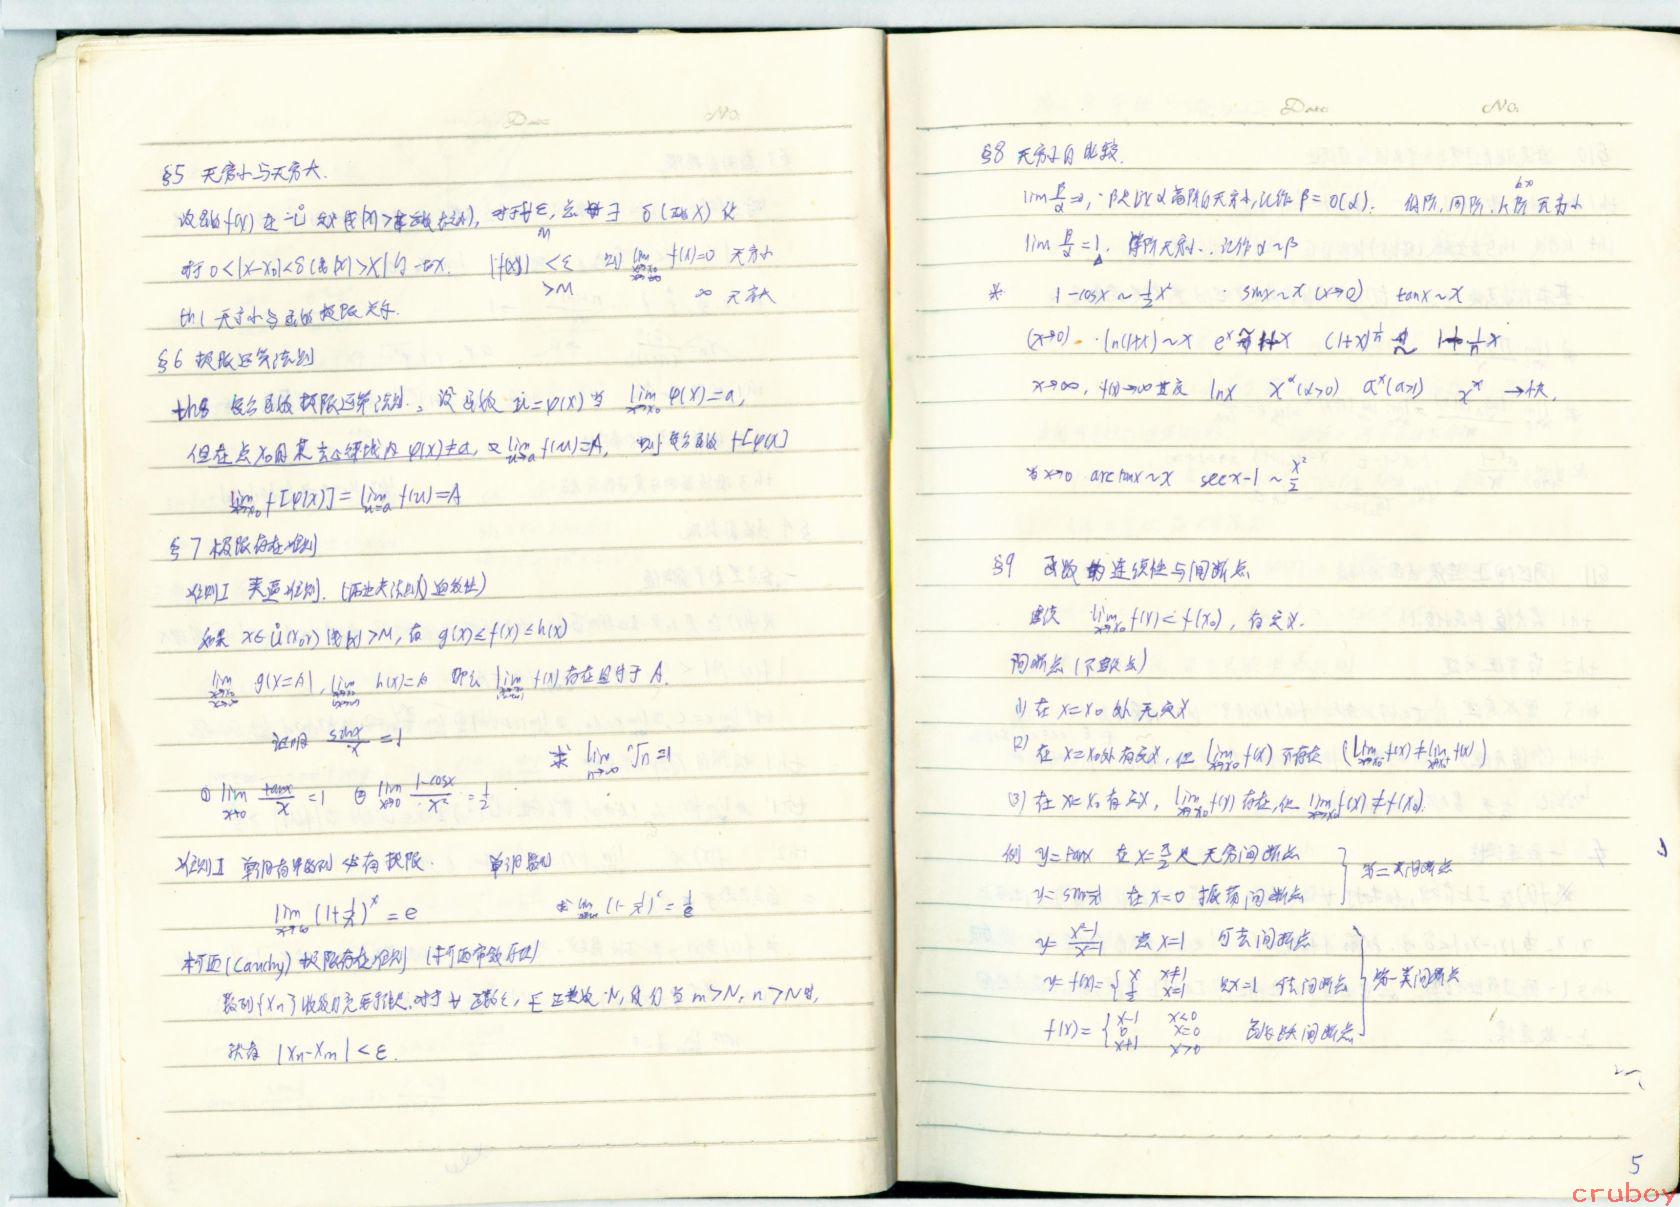 Date No.
§5 无穷小与无穷大.
设函数f(x)在 对于∀ε, ∃ δ(或X)使
M
对于0<|x-x₀|<δ(或|x|>X)的一切x. |f(x)| <ε 则 lim f(x)=0 无穷小
>M ∞ 无穷大
th1 无穷小与函数极限关系.
§6 极限运算法则
th8 复合函数极限运算法则. 设函数 u=φ(x)当 lim x→x₀ φ(x)=a,
但在点x₀的某去心邻域内 φ(x)≠a, 又 lim u→a f(u)=A, 则复合函数 f[φ(x)]
lim x→x₀ f[φ(x)] = lim u→a f(u)=A
§7 极限存在准则
准则I 夹逼准则. (两边夹法则)
如果 x∈Ů(x₀,r) 或|x|>M, 有 g(x)≤f(x)≤h(x)
lim g(x)=A, lim h(x)=A 那么 lim f(x)存在且等于A.
证明 sinx/x =1 求 lim n→∞ ⁿ√n =1
① lim x→0 tanx/x =1 ② lim x→0 1-cosx/x² = 1/2
准则II 单调有界数列必有极限. 单调数列
lim x→∞ (1+1/x)ˣ = e
柯西(Cauchy)极限存在准则 (柯西审敛原理)
数列{xₙ}收敛的充要条件是.对于∀正数ε, ∃正整数N, 使得当m>N, n>N时,
就有 |xₙ-xₘ|<ε.
Date No.
§8 无穷小的比较.
lim β/α=0, β是比α高阶的无穷小,记作β=o(α). 低阶,同阶,k阶无穷小
lim β/α=1, 等阶无穷小. 记作α~β
※ 1-cosx ~ ½x² sinx~x (x→0) tanx~x
(x→0) ln(1+x)~x
x→∞, f(x)→∞速度 lnx xᵅ(α>0) aˣ(a>1) xˣ →快.
当x→0 arctanx~x secx-1~x²/2
§9 函数的连续性与间断点
连续 lim x→x₀ f(x)=f(x₀), 有定义.
间断点(不连续点)
(1) 在x=x₀处无定义
(2) 在x=x₀处有定义, 但 lim x→x₀ f(x) 不存在 (lim x→x₀⁻ f(x)≠lim x→x₀⁺ f(x))
(3) 在x=x₀有定义, lim x→x₀ f(x)存在,但 lim x→x₀ f(x)≠f(x₀).
例 y=tanx 在x=π/2处 无穷间断点
第二类间断点
y=sin1/x 在x=0 振荡间断点
y=x²-1/x-1 点x=1 可去间断点
y=f(x)={x x≠1 ½ x=1 点x=1 可去间断点 第一类间断点
f(x)={x-1 x<0 0 x=0 x+1 x>0 跳跃间断点
5
cruboy